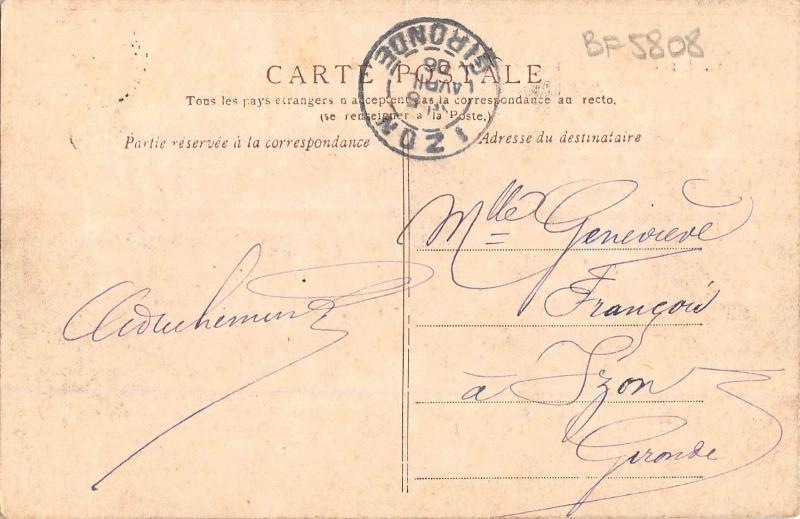 BF5808
IZON
GIRONDE
AVRIL
06
CARTE POSTALE
Tous les pays étrangers n'acceptent pas la correspondance au recto.
(se renseigner à la Poste.)
Partie réservée à la correspondance
Adresse du destinataire
Mlle Geneviève
François
à Izon
Gironde